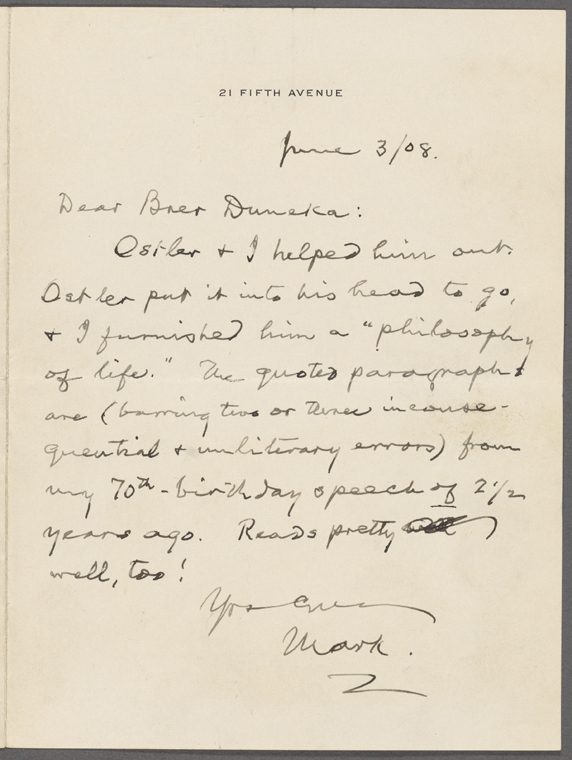 21 FIFTH AVENUE
June 3/08.
Dear Brer Duneka:
Ostler & I helped him out.
Ostler put it into his head to go,
& I furnished him a "philosophy
of life." The quoted paragraphs
are (barring two or three inconse-
quential & unliterary errors) from
my 70th-birthday speech of 2 1/2
years ago. Reads pretty
well, too!
Yrs Ever
Mark.